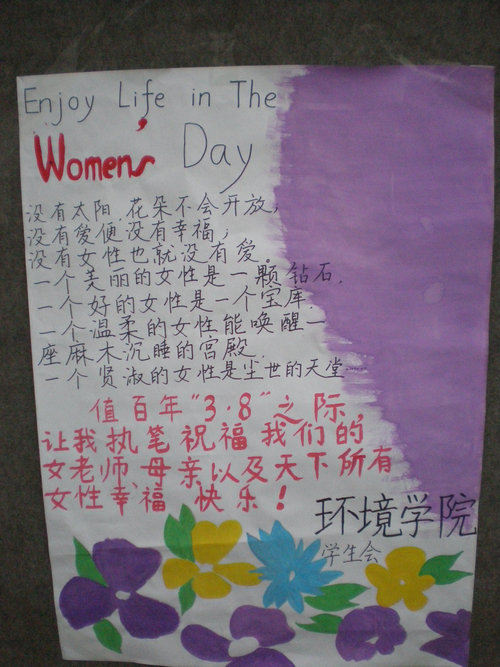 Enjoy Life in The
Women's Day
没有太阳,花朵不会开放,
没有爱便没有幸福;
没有女性也就没有爱。
一个美丽的女性是一颗钻石,
一个好的女性是一个宝库,
一个温柔的女性能唤醒一
座麻木沉睡的宫殿,
一个贤淑的女性是尘世的天堂……
值百年“3·8”之际,
让我执笔祝福我们的
女老师,母亲以及天下所有
女性幸福 快乐!
环境学院
学生会